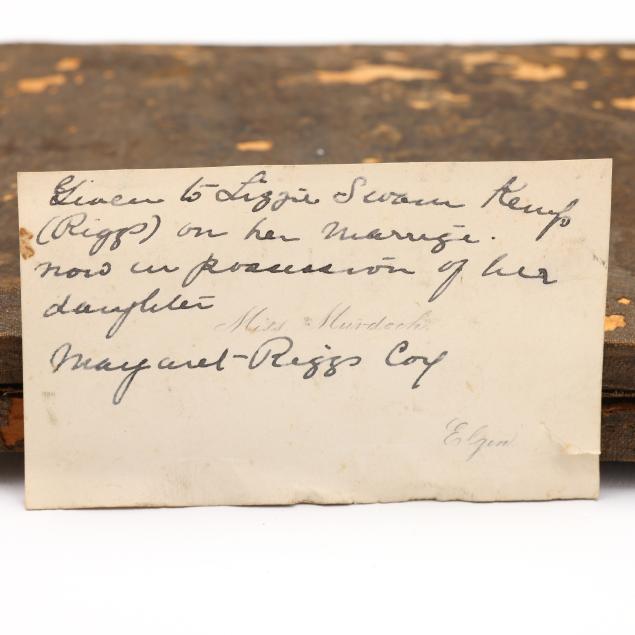 Given to Lizzie Swann Kemp
(Riggs) on her marrige.
now in possession of her
daughter
Miss Murdoch.
Margaret Riggs Coy
Elgin